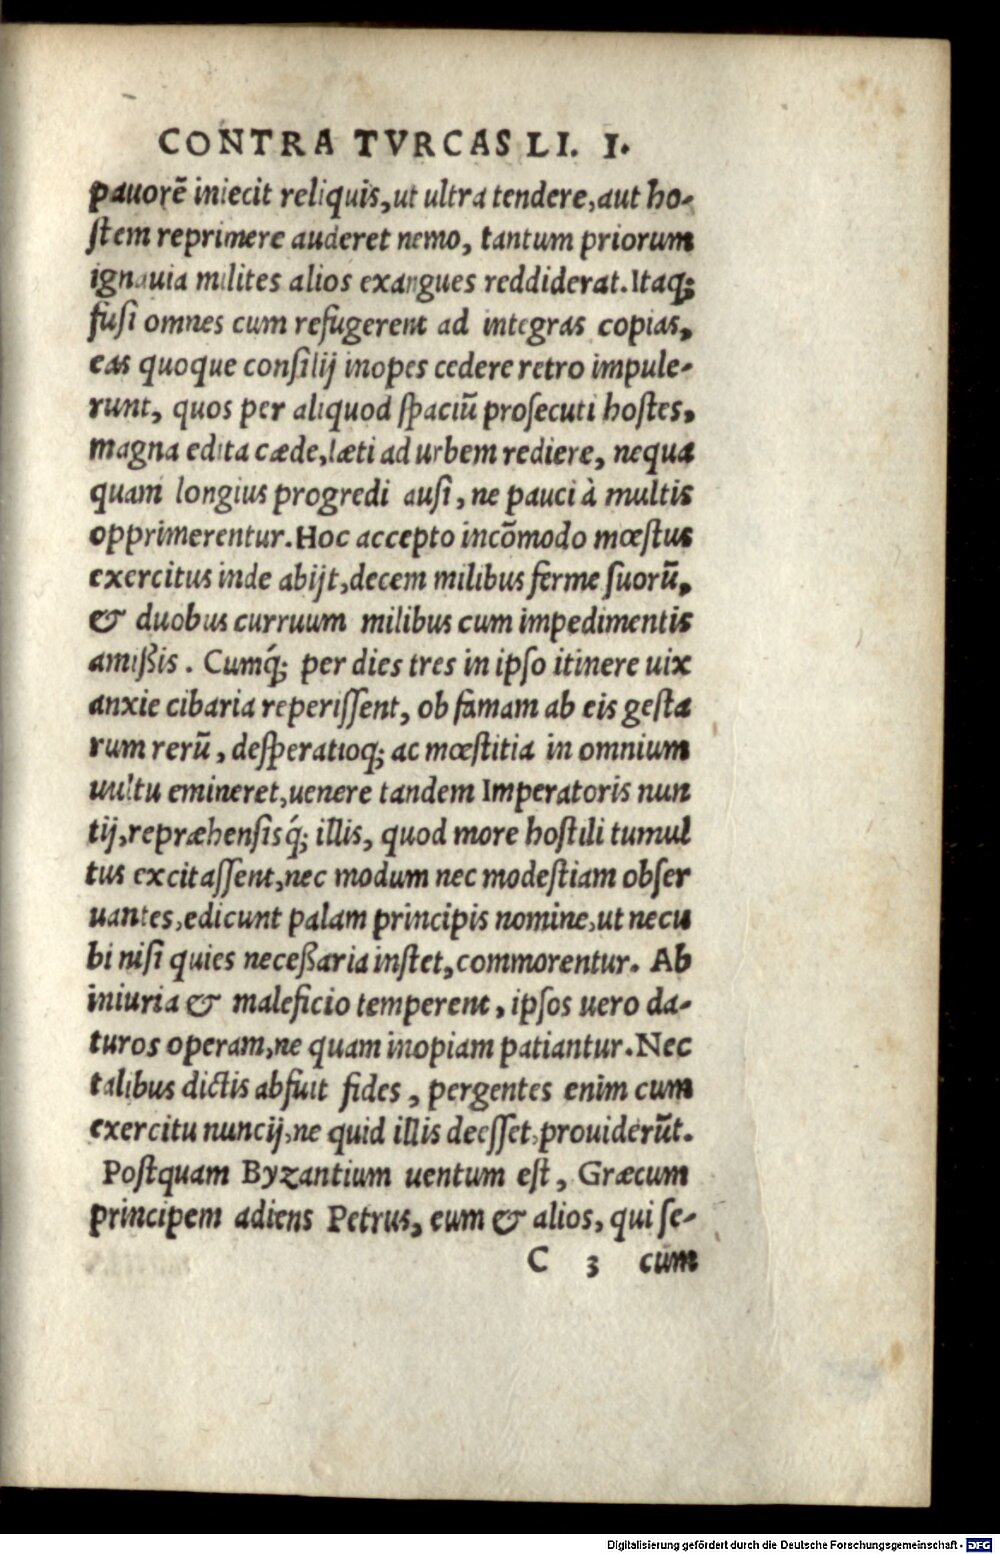 CONTRA TVRCAS LI. I.
pauorē iniecit reliquis, ut ultra tendere, aut ho-
ſtem reprimere auderet nemo, tantum priorum
ignauia milites alios exangues reddiderat. Itaq;
fuſi omnes cum refugerent ad integras copias,
eas quoque conſilij inopes cedere retro impule-
runt, quos per aliquod ſpaciū proſecuti hoſtes,
magna edita cæde, læti ad urbem rediere, nequa
quam longius progredi auſi, ne pauci à multis
opprimerentur. Hoc accepto incōmodo mœſtus
exercitus inde abijt, decem milibus ferme ſuorū,
& duobus curruum milibus cum impedimentis
amißis. Cumq́; per dies tres in ipſo itinere uix
anxie cibaria reperiſſent, ob famam ab eis geſta
rum rerū, deſperatioq; ac mœſtitia in omnium
uultu emineret, uenere tandem Imperatoris nun
tij, repræhenſisq́; illis, quod more hoſtili tumul
tus excitaſſent, nec modum nec modeſtiam obſer
uantes, edicunt palam principis nomine, ut necu
bi niſi quies neceßaria inſtet, commorentur. Ab
iniuria & maleficio temperent, ipſos uero da-
turos operam, ne quam inopiam patiantur. Nec
talibus dictis abfuit fides, pergentes enim cum
exercitu nuncij, ne quid illis deeſſet, prouiderūt.
Poſtquam Byzantium uentum eſt, Græcum
principem adiens Petrus, eum & alios, qui ſe-
C 3 cum
Digitalisierung gefördert durch die Deutsche Forschungsgemeinschaft - DFG